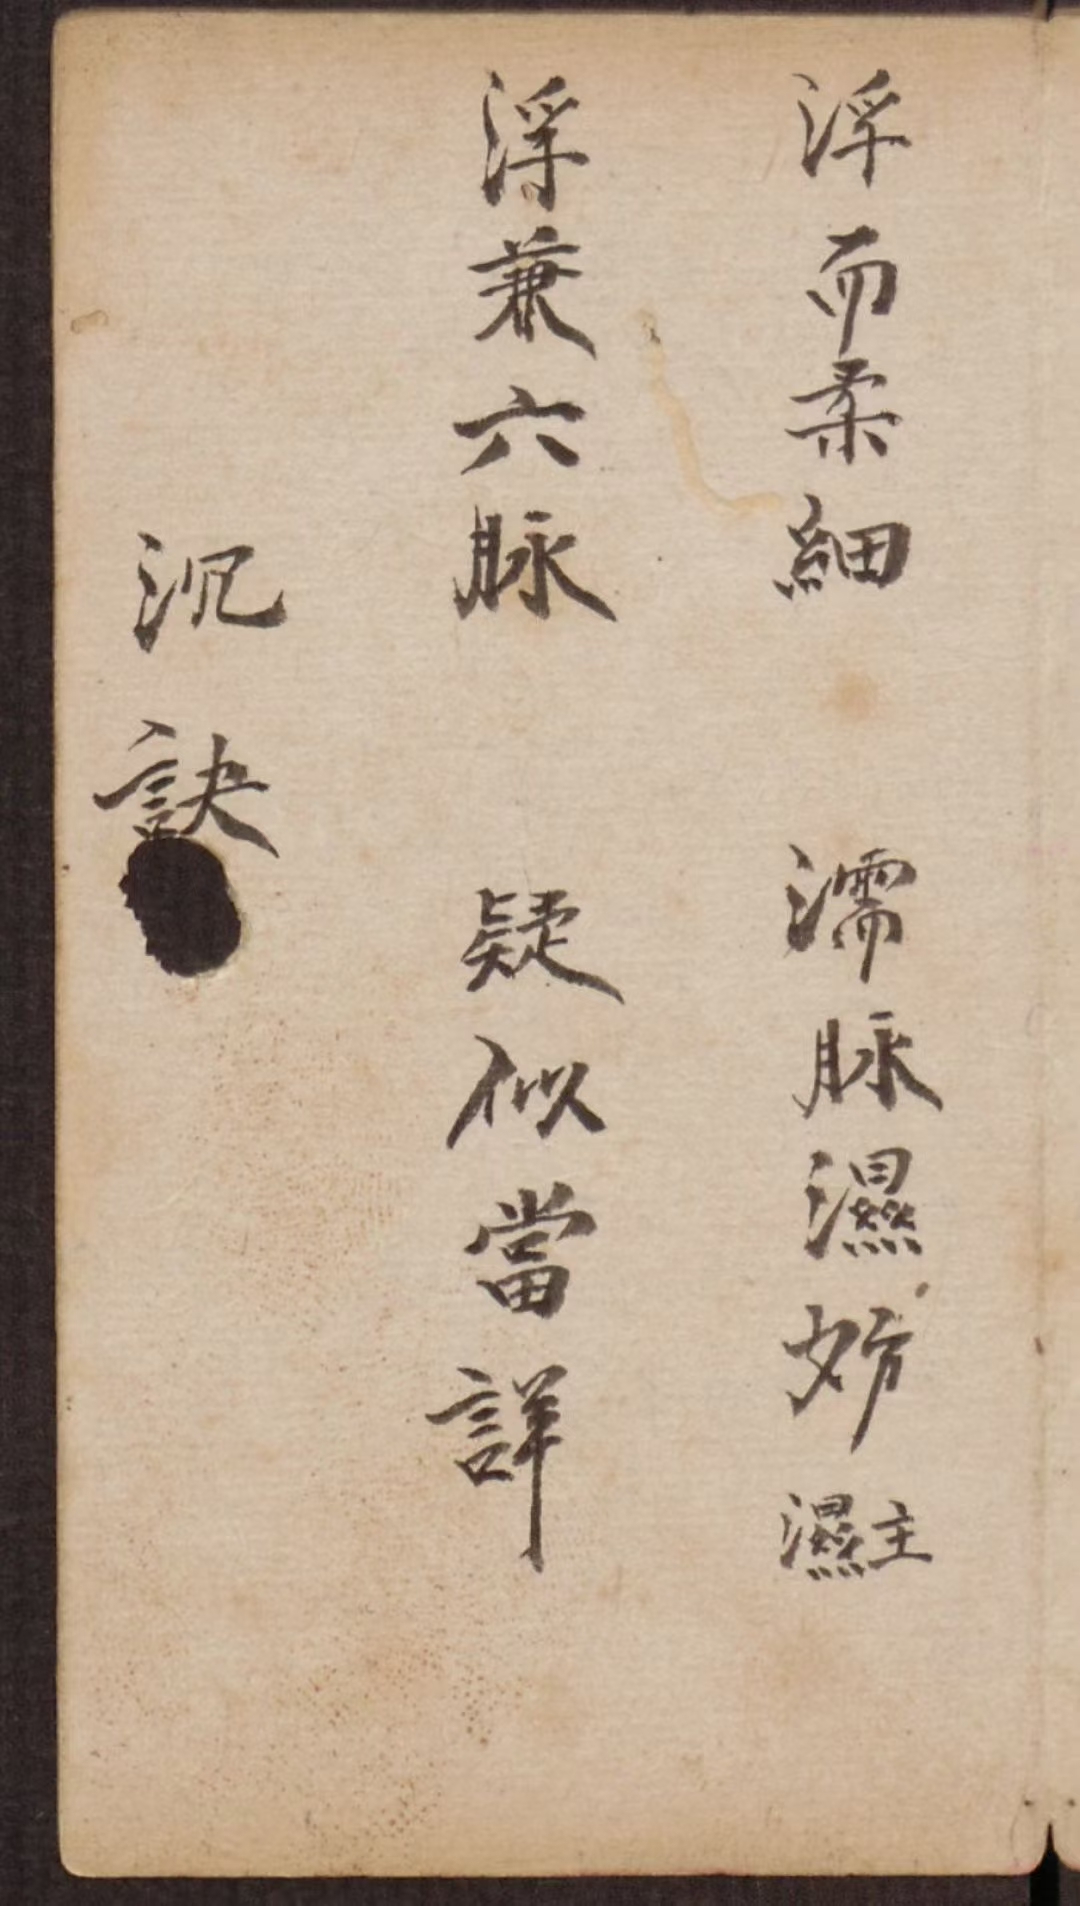 浮而柔細　濡脉濕妨　主濕
浮兼六脉　疑似當詳
沉訣